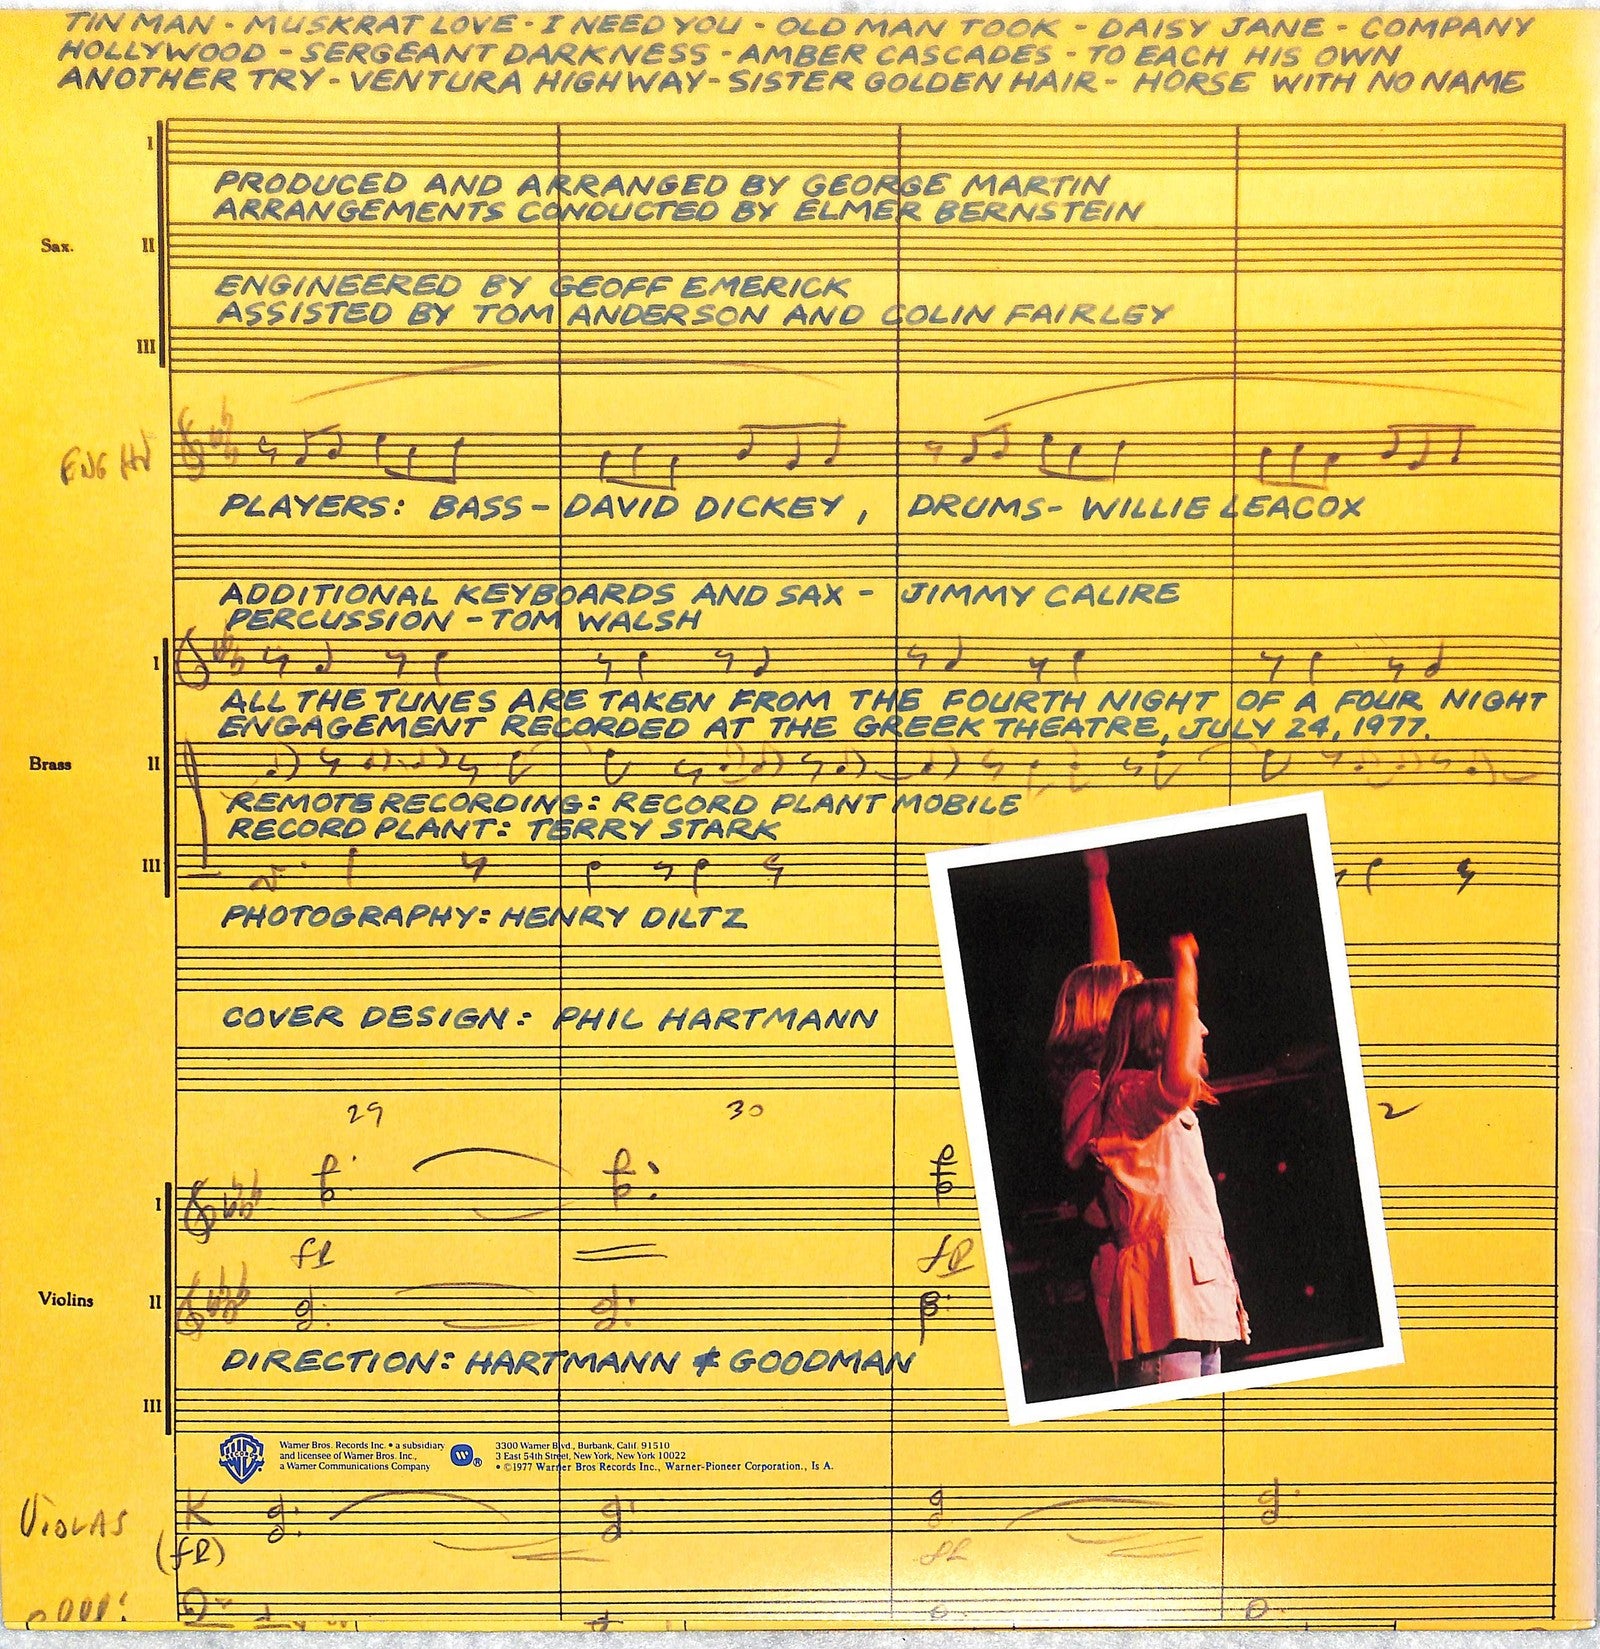 TIN MAN - MUSKRAT LOVE - I NEED YOU - OLD MAN TOOK - DAISY JANE - COMPANY
HOLLYWOOD - SERGEANT DARKNESS - AMBER CASCADES - TO EACH HIS OWN
ANOTHER TRY - VENTURA HIGHWAY - SISTER GOLDEN HAIR - HORSE WITH NO NAME
I
PRODUCED AND ARRANGED BY GEORGE MARTIN
ARRANGEMENTS CONDUCTED BY ELMER BERNSTEIN
Sax. II
ENGINEERED BY GEOFF EMERICK
ASSISTED BY TOM ANDERSON AND COLIN FAIRLEY
III
ENG HN
PLAYERS: BASS - DAVID DICKEY, DRUMS - WILLIE LEACOX
ADDITIONAL KEYBOARDS AND SAX - JIMMY CALIRE
PERCUSSION - TOM WALSH
I
ALL THE TUNES ARE TAKEN FROM THE FOURTH NIGHT OF A FOUR NIGHT
ENGAGEMENT RECORDED AT THE GREEK THEATRE, JULY 24, 1977.
Brass II
REMOTE RECORDING: RECORD PLANT MOBILE
RECORD PLANT: TERRY STARK
III
PHOTOGRAPHY: HENRY DILTZ
COVER DESIGN: PHIL HARTMANN
29 30 2
I
fp fp
Violins II
DIRECTION: HARTMANN & GOODMAN
III
Warner Bros. Records Inc. • a subsidiary
and licensee of Warner Bros. Inc.,
a Warner Communications Company
3300 Warner Blvd., Burbank, Calif. 91510
3 East 54th Street, New York, New York 10022
• ©1977 Warner Bros Records Inc., Warner-Pioneer Corporation., Is A.
VIOLAS
(fp) fp